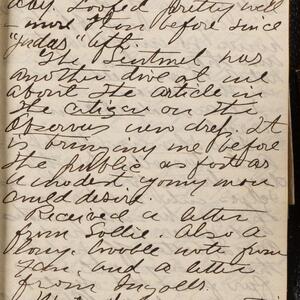 day. Loafed pretty well
- more than before since
"Judas" left.
The Sentinel has
another dive at me
about the article in
the Citizen on the
Observer's new dress. It
is bringing me before
the public as fast as
a modest young man
could desire.
Received a letter
from Sollie. Also a
long, note from
and a letter
from Ingalls.